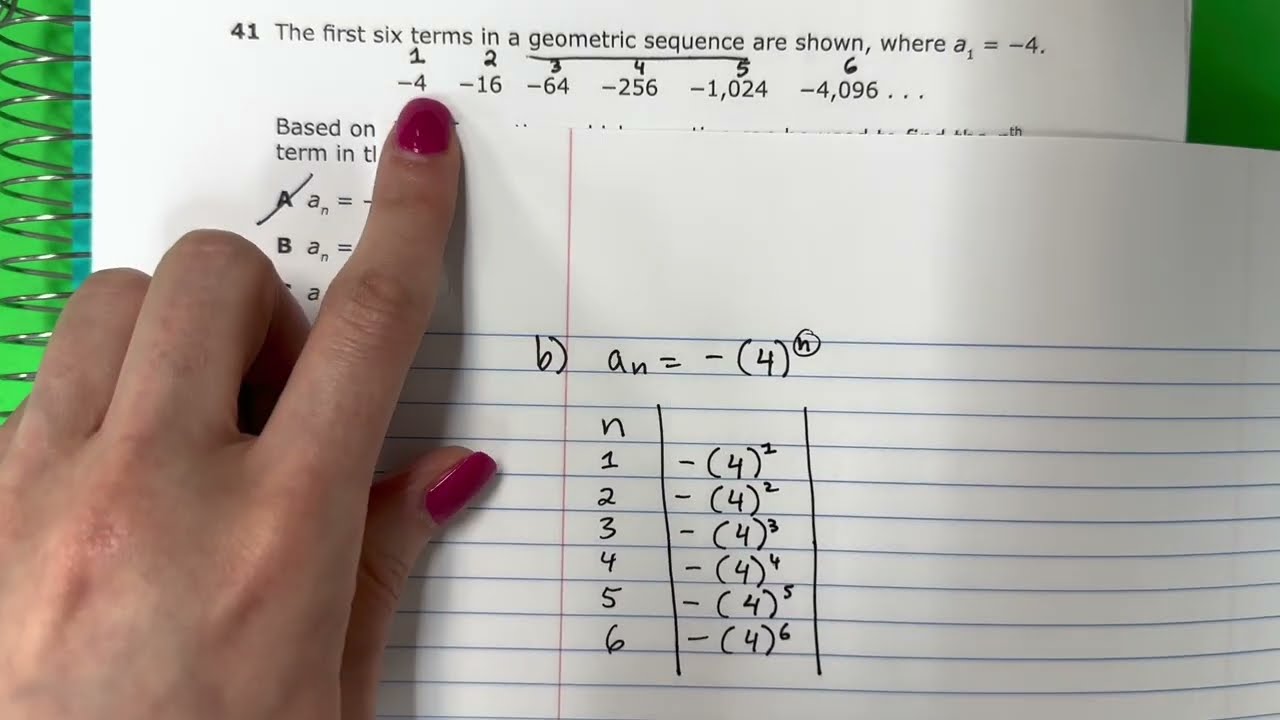 41 The first six terms in a geometric sequence are shown, where a₁ = −4.
1 2 3 4 5 6
−4 −16 −64 −256 −1,024 −4,096 . . .
Based on
th
term in
A aₙ = -
B aₙ =
a
b) aₙ = - (4)ⁿ
n
1 - (4)¹
2 - (4)²
3 - (4)³
4 - (4)⁴
5 - (4)⁵
6 - (4)⁶